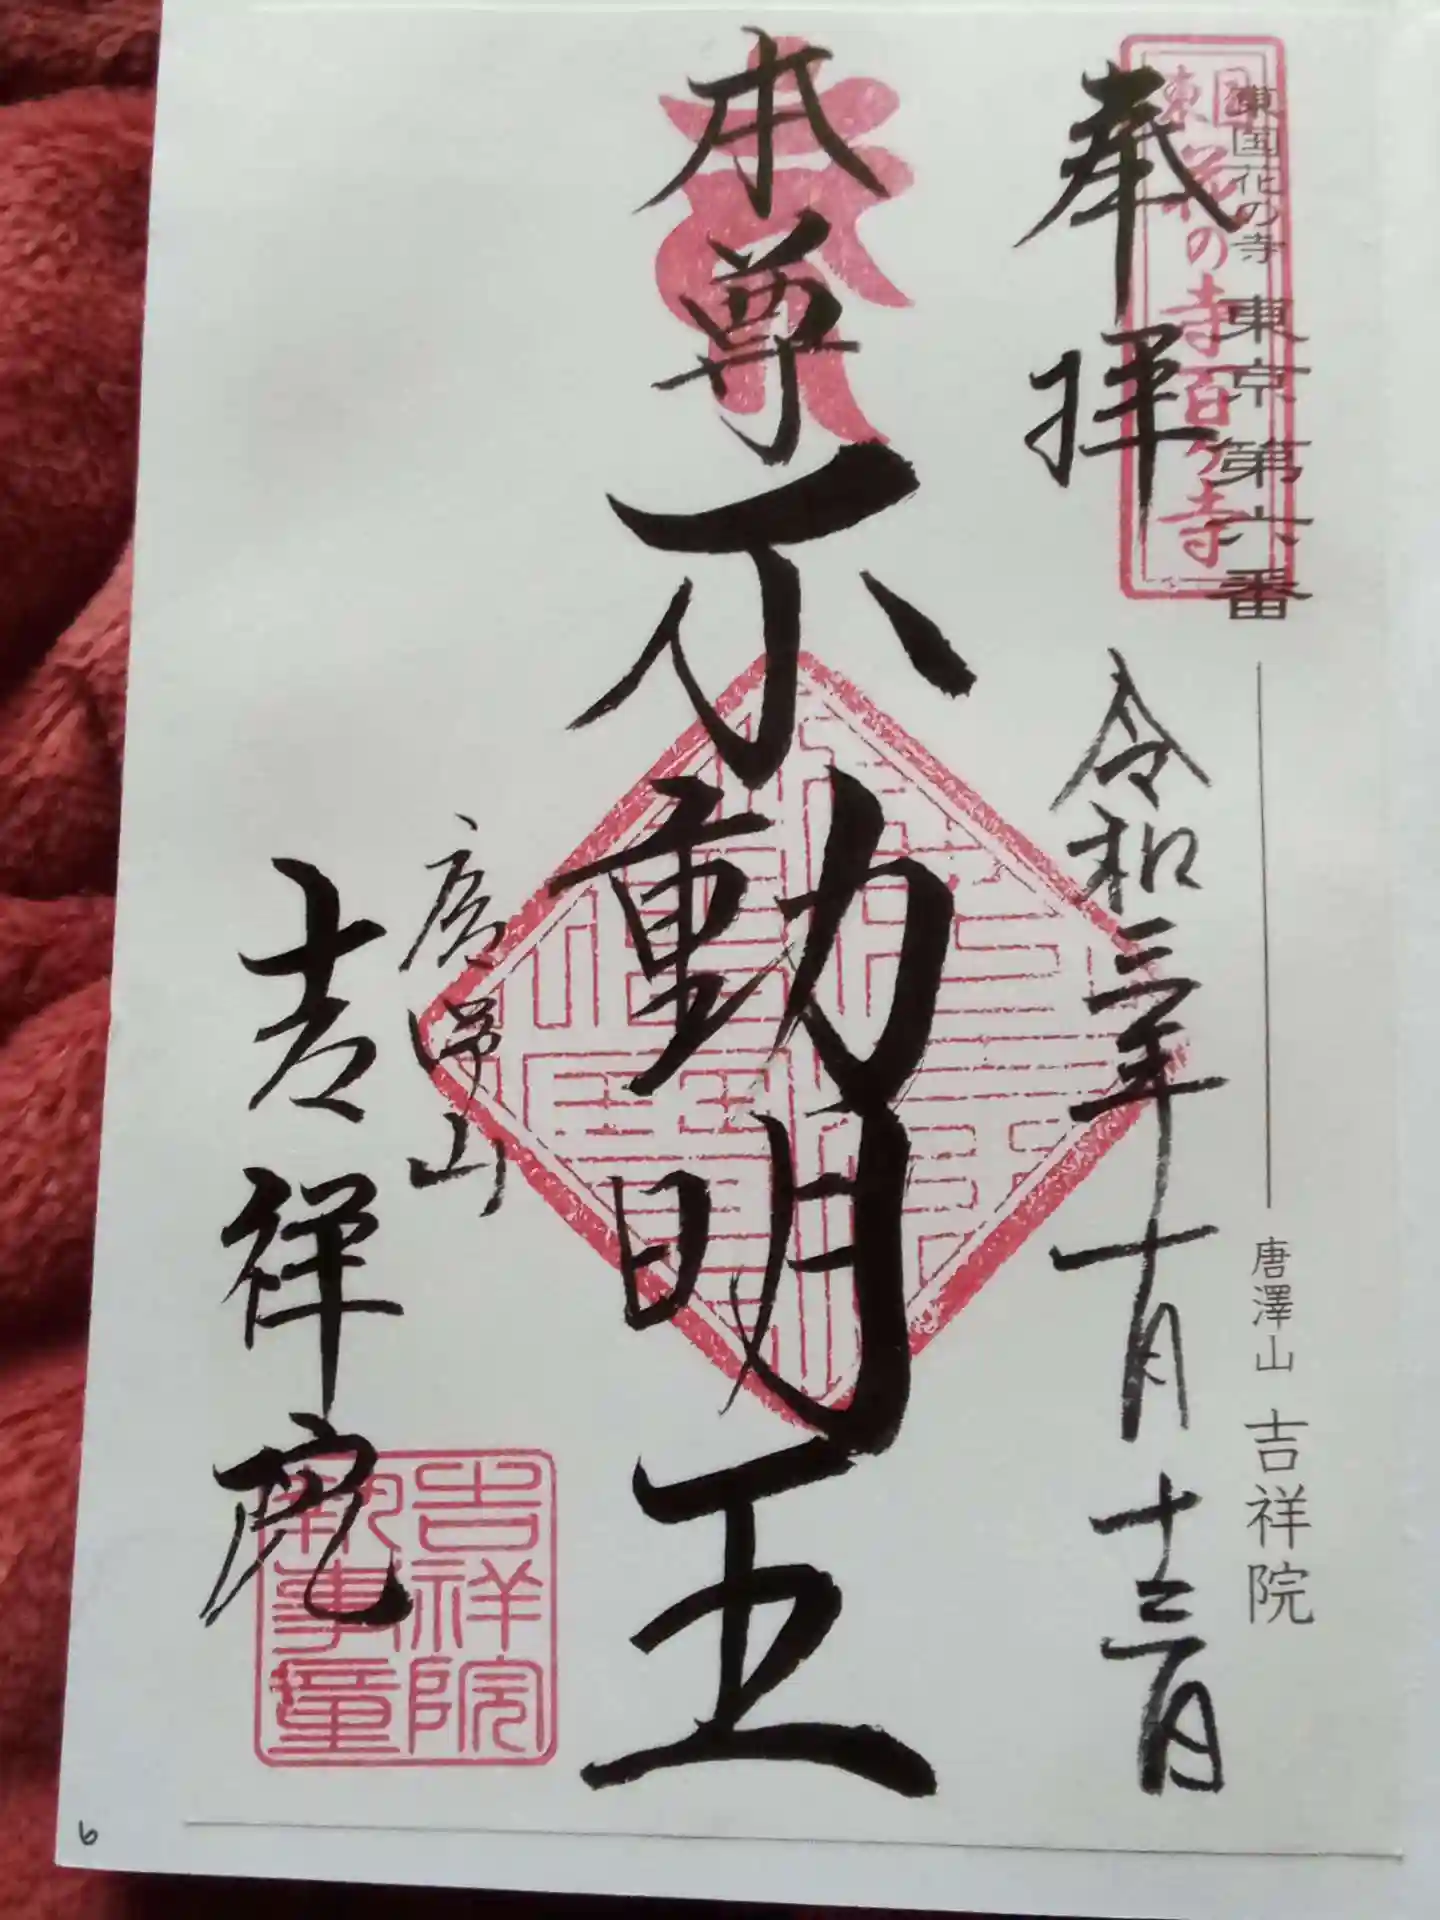 東国花の寺 東京第六番
唐澤山 吉祥院
東国花の寺百ヶ寺
奉拝
令和三年十月十三日
本尊不動明王
唐澤山
吉祥院
吉祥院
執事章
6